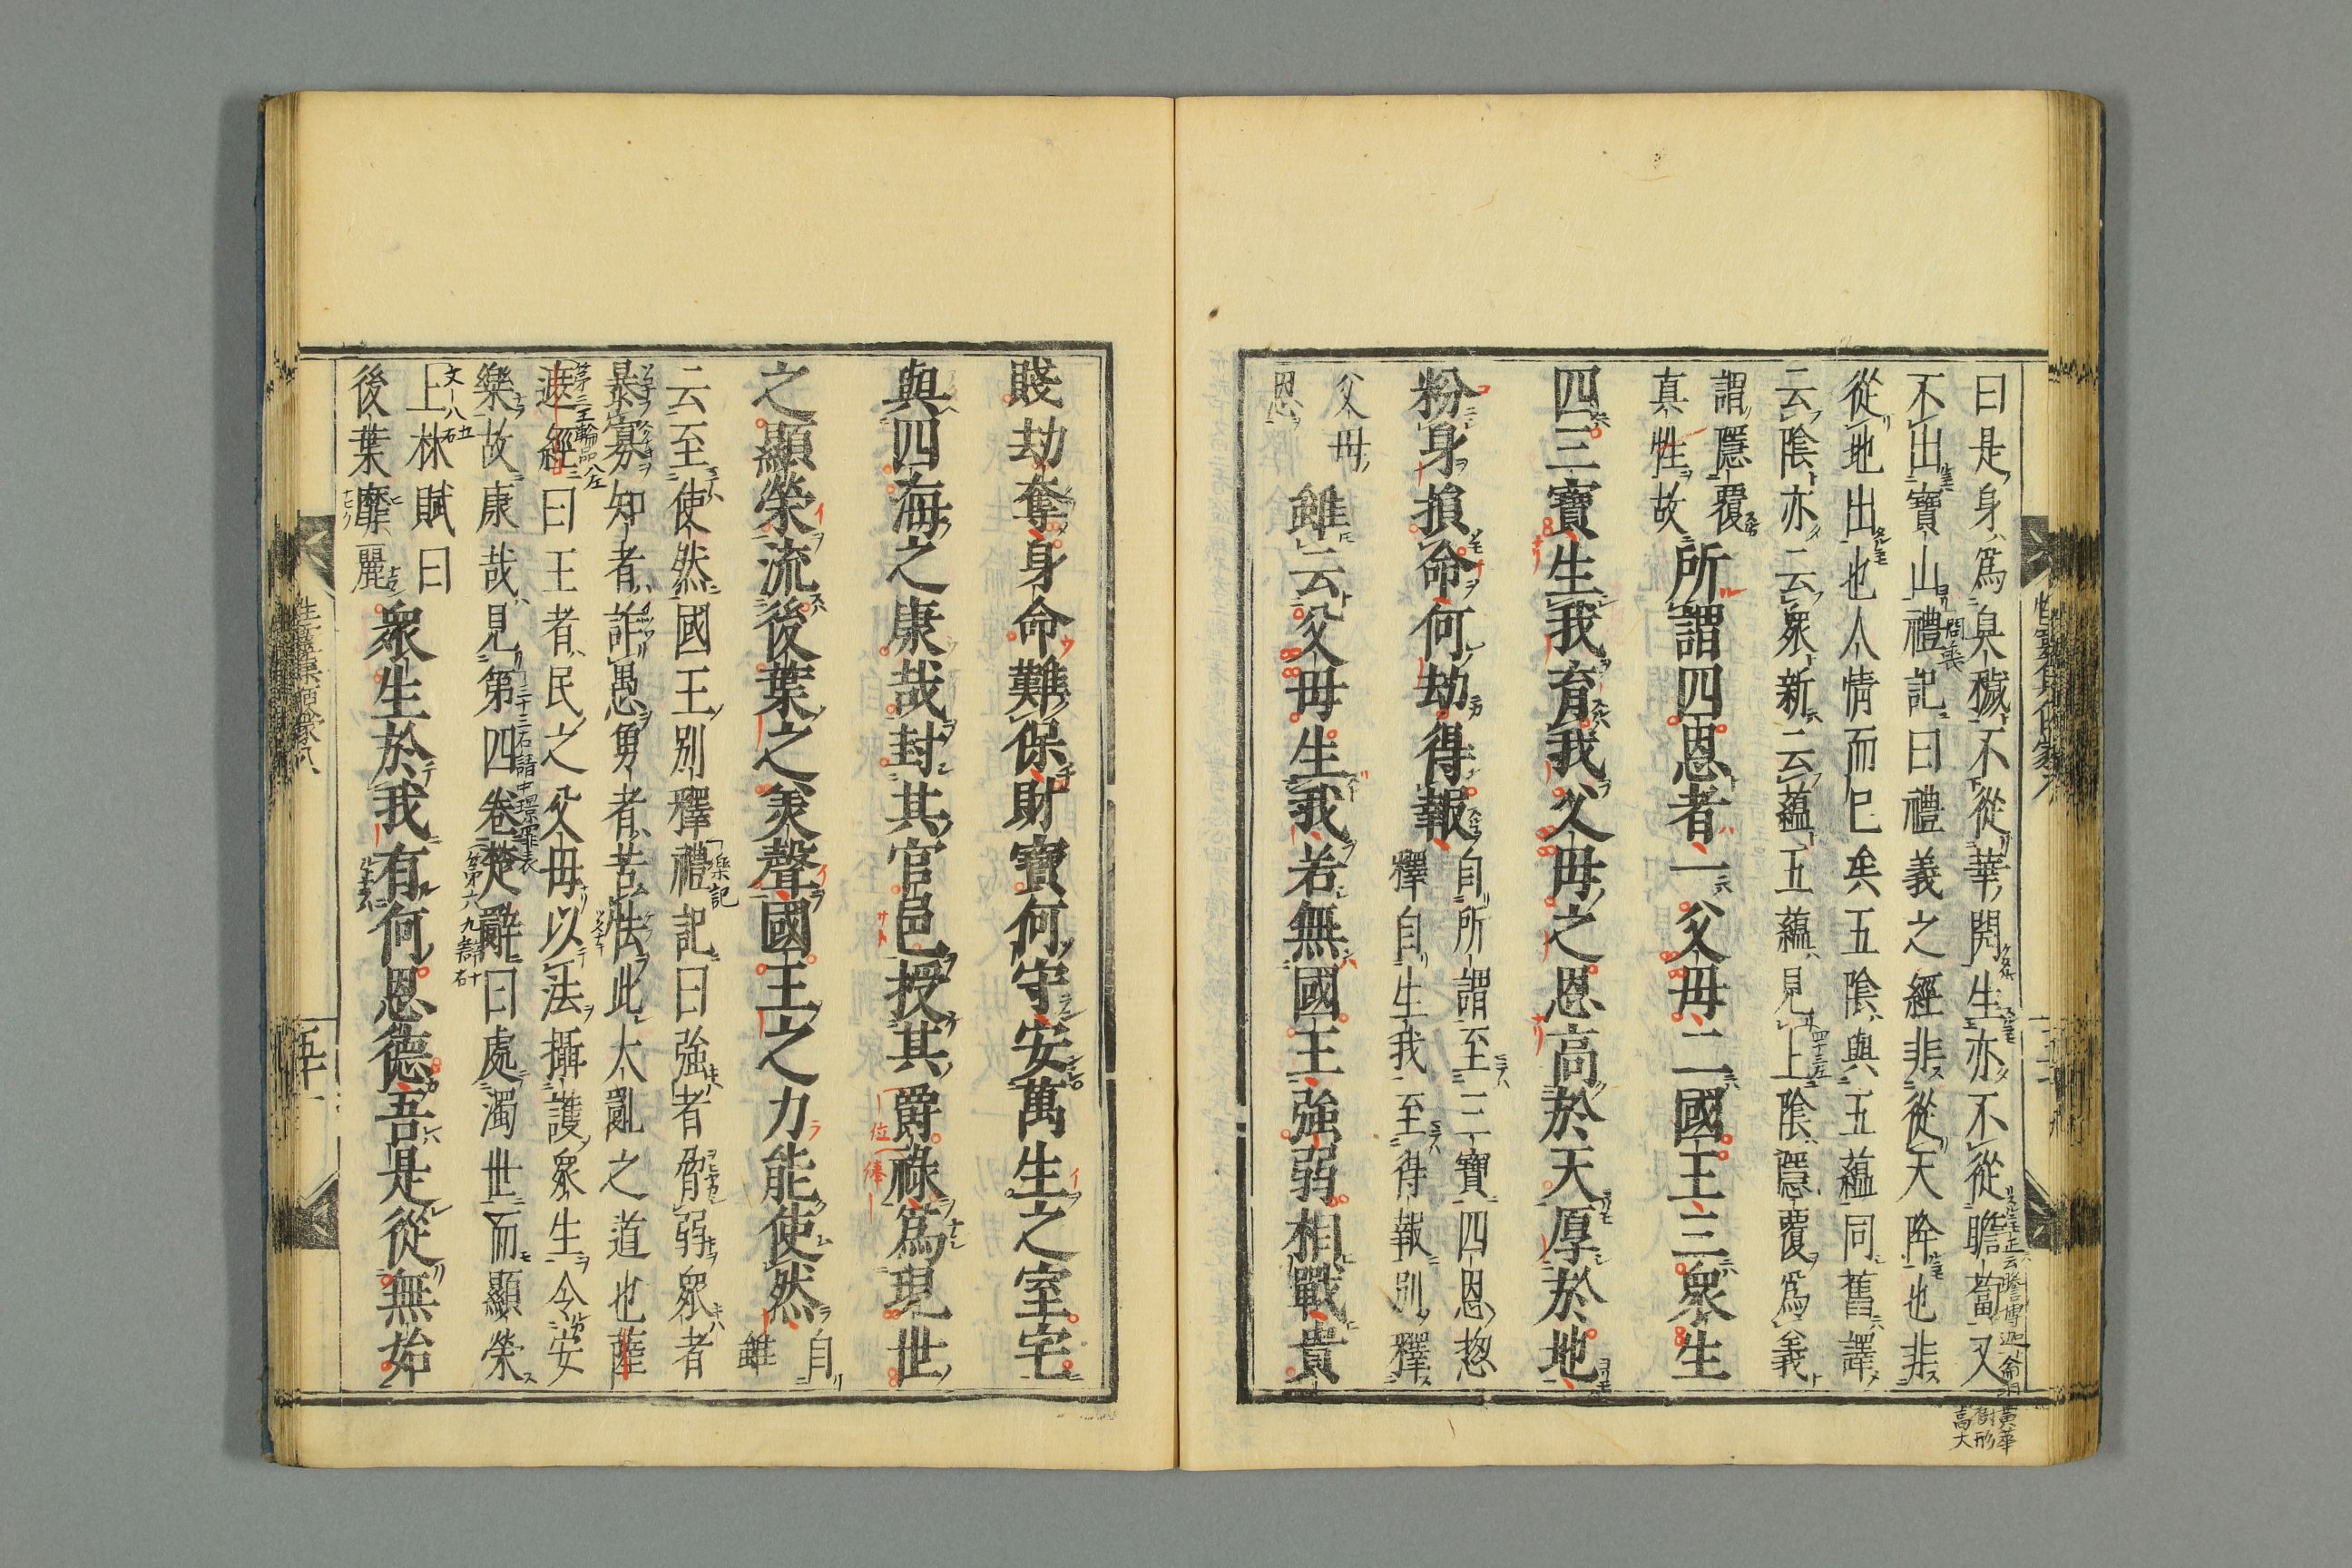 曰是身爲臭穢不從華開生亦不從瞻蔔又
不出寶山禮記曰禮義之經非從天降也非
從地出也人情而已矣五陰與五蘊同舊譯
云陰亦云衆新云蘊五蘊見上陰隱覆爲義
謂隱覆
真性故
所謂四恩者一父母二國王三衆生
四三寶生我育我父母之恩高於天厚於地
粉身損命何劫得報
自所謂至三寶四恩惣
釋自生我至得報別釋
父母
恩
雖云父母生我若無國王強弱相戰貴
賤劫奪身命難保財寶何守安萬生之室宅
與四海之康哉封其官邑授其爵祿爲現世
之顯榮流後葉之美聲國王之力能使然
自
雖
云至使然國王別釋禮記曰強者脅弱衆者
暴寡知者詐愚勇者苦怯此大亂之道也薩
遮經曰王者民之父母以法攝護衆生令安
樂故康哉見第四卷楚辭曰處濁世而顯榮
上林賦曰
後葉靡麗
衆生於我有何恩德吾是從無始